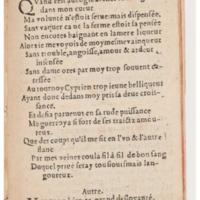 dans mon cœur
Ma volunté n'estoit serue mais dispensée,
Sans vaquer ca ne la ferme estoit sa pensée
Non encores baignant en lamere liqueur
Alors ie me vois de moymesme vainqueur
Sans trouble, angoisse, amour &
insensée
Sans dame ores par moy trop souuent
tressée
Au tournoy Cyprien trop ieune belliqueux
Ayant donc dedans moy pris sa deux crois-
sance,
Et desia paruenus en sa rude puissance
Me guerroya si fort de ses traicts
reux,
Que des coups qu'il me fit en l'vn & l'autre
flanc
Par mes veines coula fil à fil de bon sang
Duquel perte seray tousiours mais lan-
goureux.
Autre.